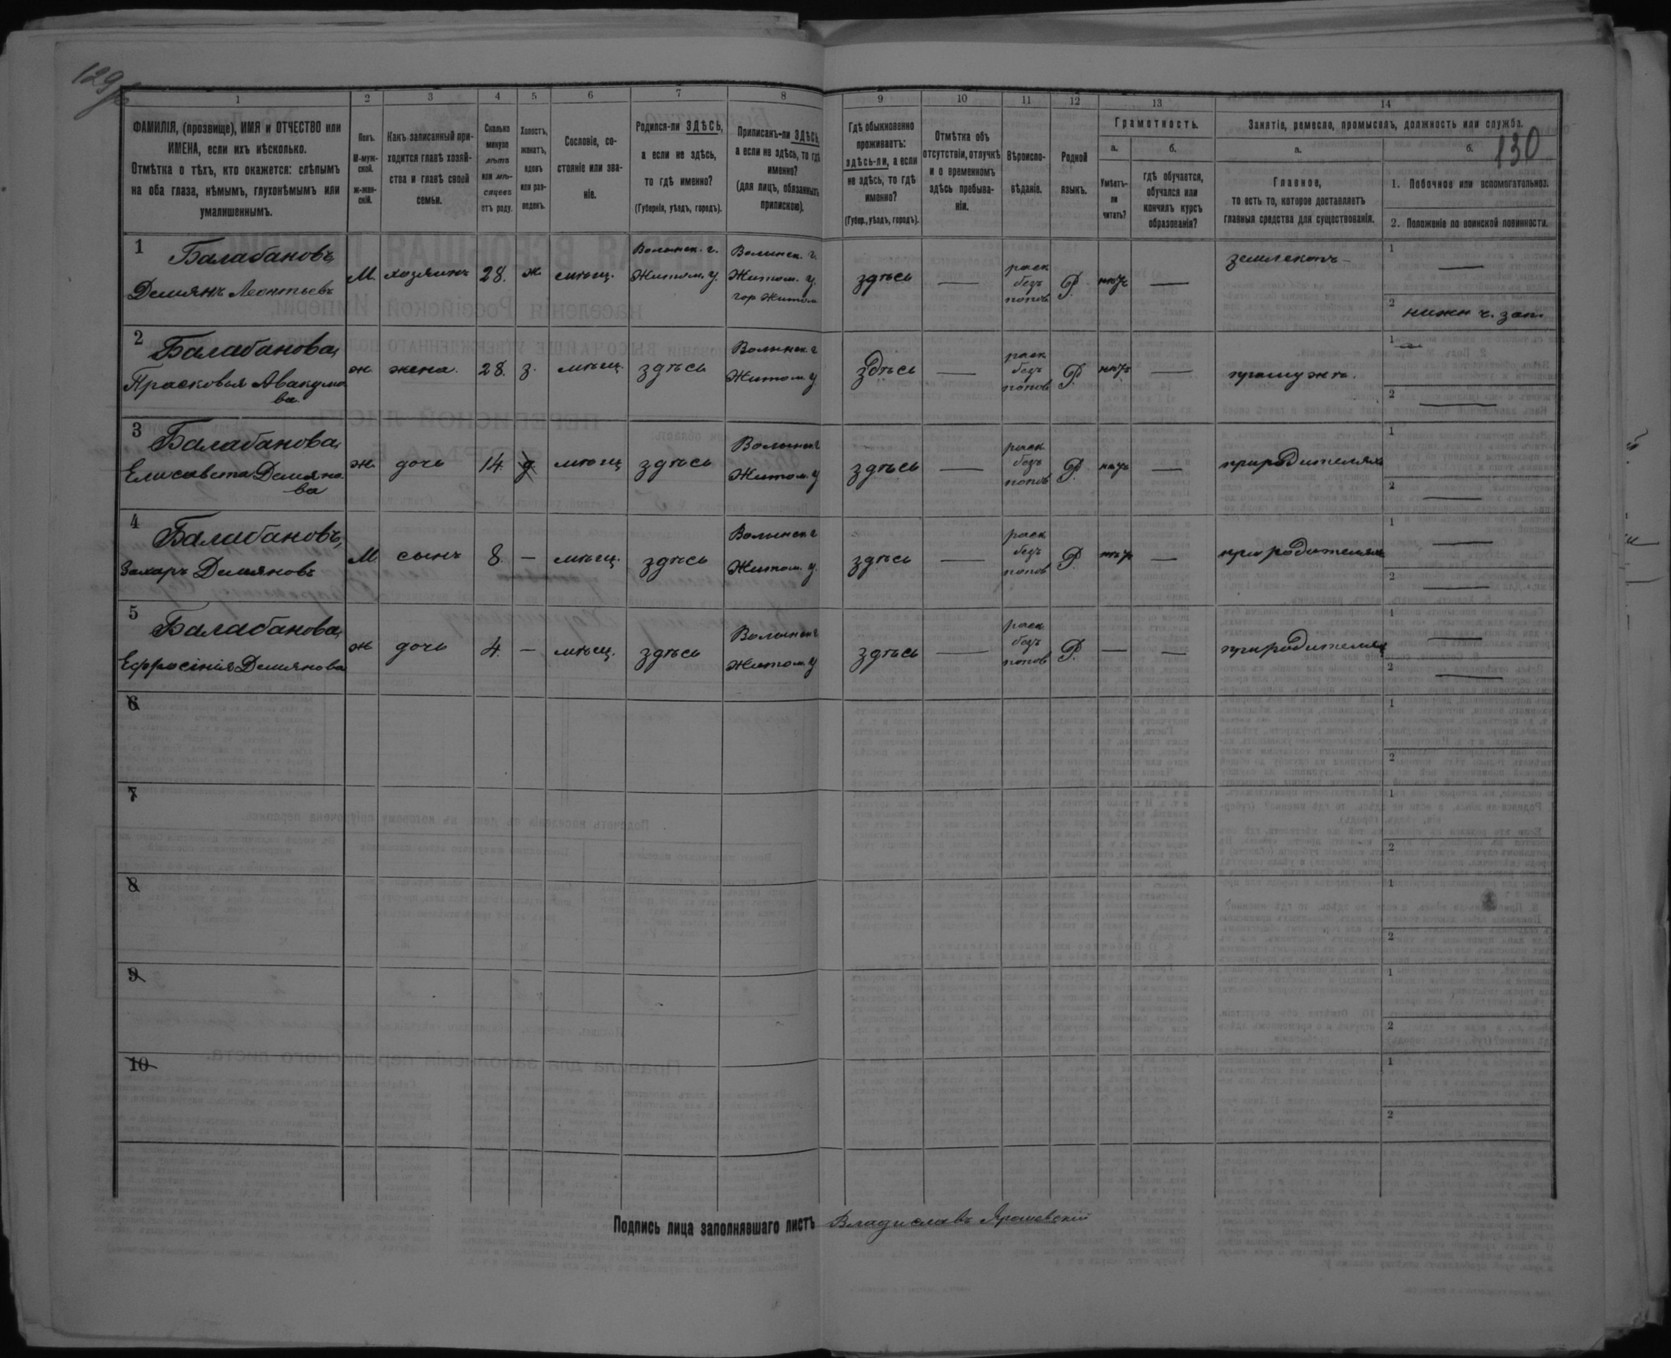 129
130
1
2
3
4
5
6
7
8
9
10
11
12
13
14
ФАМИЛІЯ, (прозвище), ИМЯ и ОТЧЕСТВО или
ИМЕНА, если ихъ нѣсколько.
Отмѣтка о тѣхъ, кто окажется: слѣпымъ
на оба глаза, нѣмымъ, глухонѣмымъ или
умалишеннымъ.
Полъ.
М-муж-
ской.
ж-жен-
скій.
Какъ записанный при-
ходится главѣ хозяй-
ства и главѣ своей
семьи.
Сколько
минуло
лѣтъ
или мѣ-
сяцевъ
отъ роду.
Холостъ,
женатъ,
вдовъ
или раз-
веденъ.
Сословіе, со-
стояніе или зва-
ніе.
Родился-ли ЗДѢСЬ,
а если не здѣсь,
то гдѣ именно?
(Губернія, уѣздъ, городъ).
Приписанъ-ли ЗДѢСЬ,
а если не здѣсь, то гдѣ
именно?
(для лицъ, обязанныхъ
припискою).
Гдѣ обыкновенно
проживаетъ:
здѣсь-ли, а если
не здѣсь, то гдѣ
именно?
(Губер., уѣздъ, городъ).
Отмѣтка объ
отсутствіи, отлучкѣ
и о временномъ
здѣсь пребыва-
ніи.
Вѣроиспо-
вѣданіе.
Родной
языкъ.
Грамотность.
а.
Умѣетъ-
ли
читать?
б.
гдѣ обучается,
обучался или
кончилъ курсъ
образованія?
Занятіе, ремесло, промыселъ, должность или служба.
а.
Главное,
то есть то, которое доставляетъ
главныя средства для существованія.
б.
1. Побочное или вспомогательное.
2. Положеніе по воинской повинности.
1 Балабановъ
Демянъ Леонтьевъ
М хозяинъ 28. ж мѣщ. Волынск. г. Житом. у. Волынск. г. Житом. у. гор Житом здѣсь — раск безъ попов Р. — землекопъ 1 — 2 нижн ч. зап.
2 Балабанова
Прасковья Авакумова
ж жена. 28. з. мѣщ здѣсь Волынск г Житом у здѣсь — раск безъ попов Р. — примужѣ. 1 — 2 —
3 Балабанова
Елисавета Демянова
ж дочь 14 мѣщ здѣсь Волынск г Житом у здѣсь — раск безъ попов Р. — при родителях 1 — 2 —
4 Балабановъ
Захаръ Демяновъ
М сынъ 8 — мѣщ. здѣсь Волынск г Житом у. здѣсь — раск безъ попов Р. — при родителях 1 — 2 —
5 Балабанова
Ефросінія Демянова
ж дочь 4 — мѣщ. здѣсь Волынск г Житом у здѣсь — раск безъ попов Р. — — при родителях 1 — 2 —
6 1 2
7 1 2
8 1 2
9 1 2
10 1 2
Подпись лица заполнявшаго листъ Владиславъ Ярошевскій